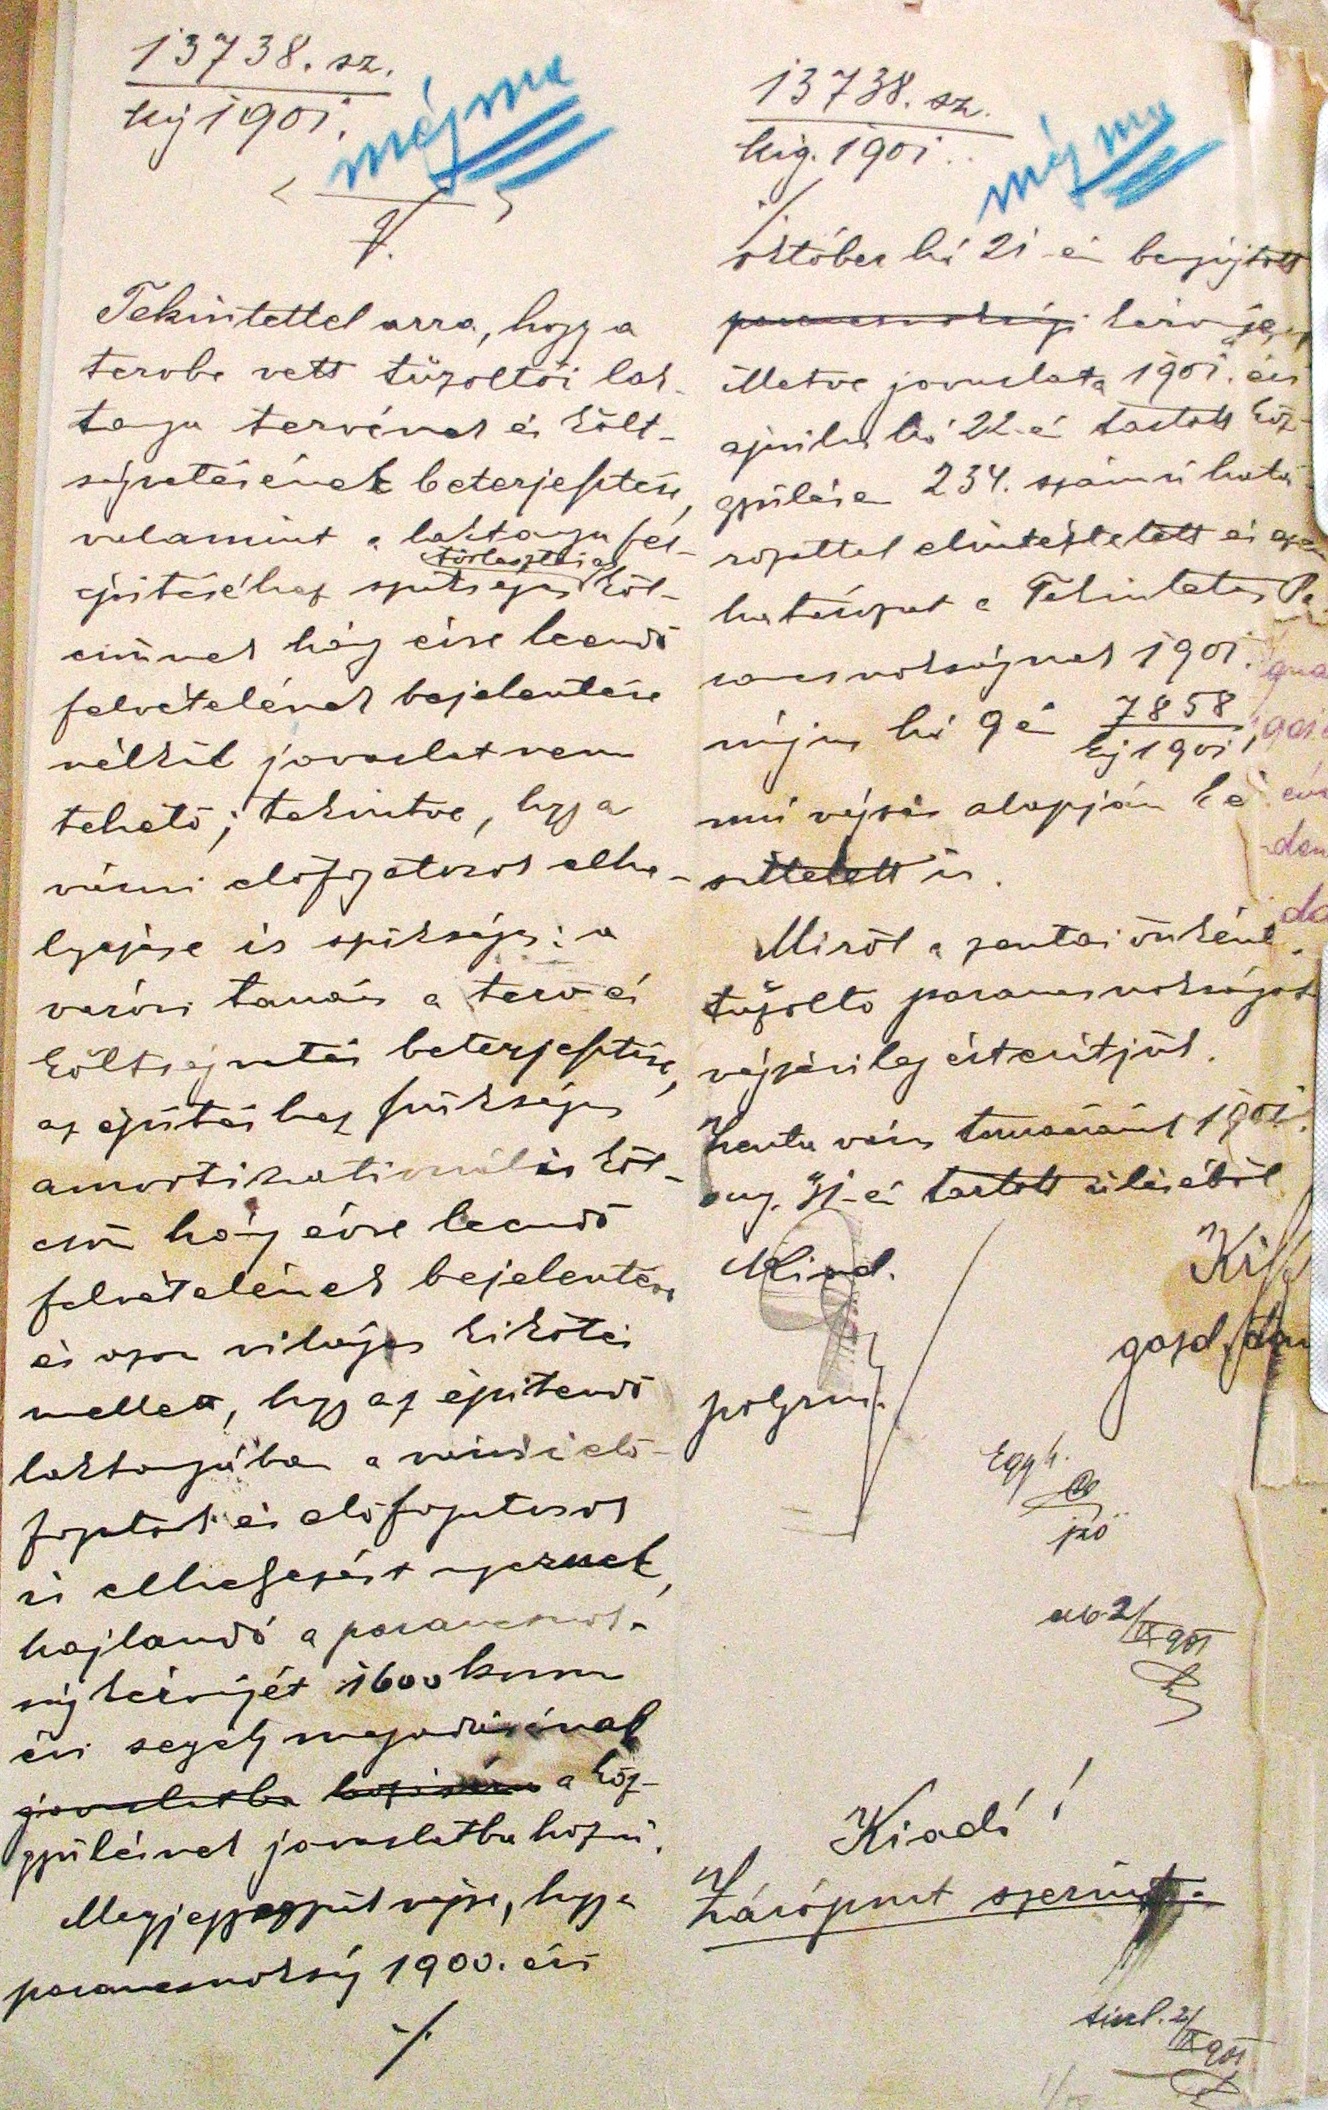 13738. sz.
kig 1901.
V.
Tekintettel arra, hogy a
tervbe vett tüzoltói lak-
tanya tervének és költ-
ségvetésének beterjesztése,
valamint a laktanya fel-
törlesztéses
épitéséhez szükséges köl-
csönnek hány évre leendő
felvételének bejelentése
nélkül javaslat nem
tehető; tekintve, hogy a
városi előfogatosok elhe-
lyezése is szükséges: a
városi tanács a terv és
költségvetés beterjesztése,
az épitéshez szükséges
amortizationális köl-
csön hány évre leendő
felvételének bejelentése
és azon világos kikötés
mellett, hogy az épitendő
laktanyában a városi elő-
fogatok és előfogatosok
is elhelyezést nyernek,
hajlandó a parancsnok-
ság kérvényét 1600 korona
évi segély megadásának
javaslatba hozására a köz-
gyülésnek javaslatba hozni.
Megjegyezzük végre, hogy a
parancsnokság 1900. évi
./.
13738. sz.
kig. 1901.
./.
október hó 21-én benyújtott
parancsnoksági kérvénye,
illetve javaslata 1901. évi
április hó 22-én tartott köz-
gyülésen 234. számú hatá-
rozattal elintéztetett és ezen
határozat a Tekintetes Pa-
rancsnokságnak 1901.
május hó 9-én 7858
kig 1901
alapján ké-
sittetett is.
Miről a zentai önként.
tüzoltó parancsnokságot
végzésileg értesitjük.
Zenta város tanácsának 1901.
aug. 31-én tartott üléséből
polgrm.
gazd.
Kiadó!
Záróponat szerint.